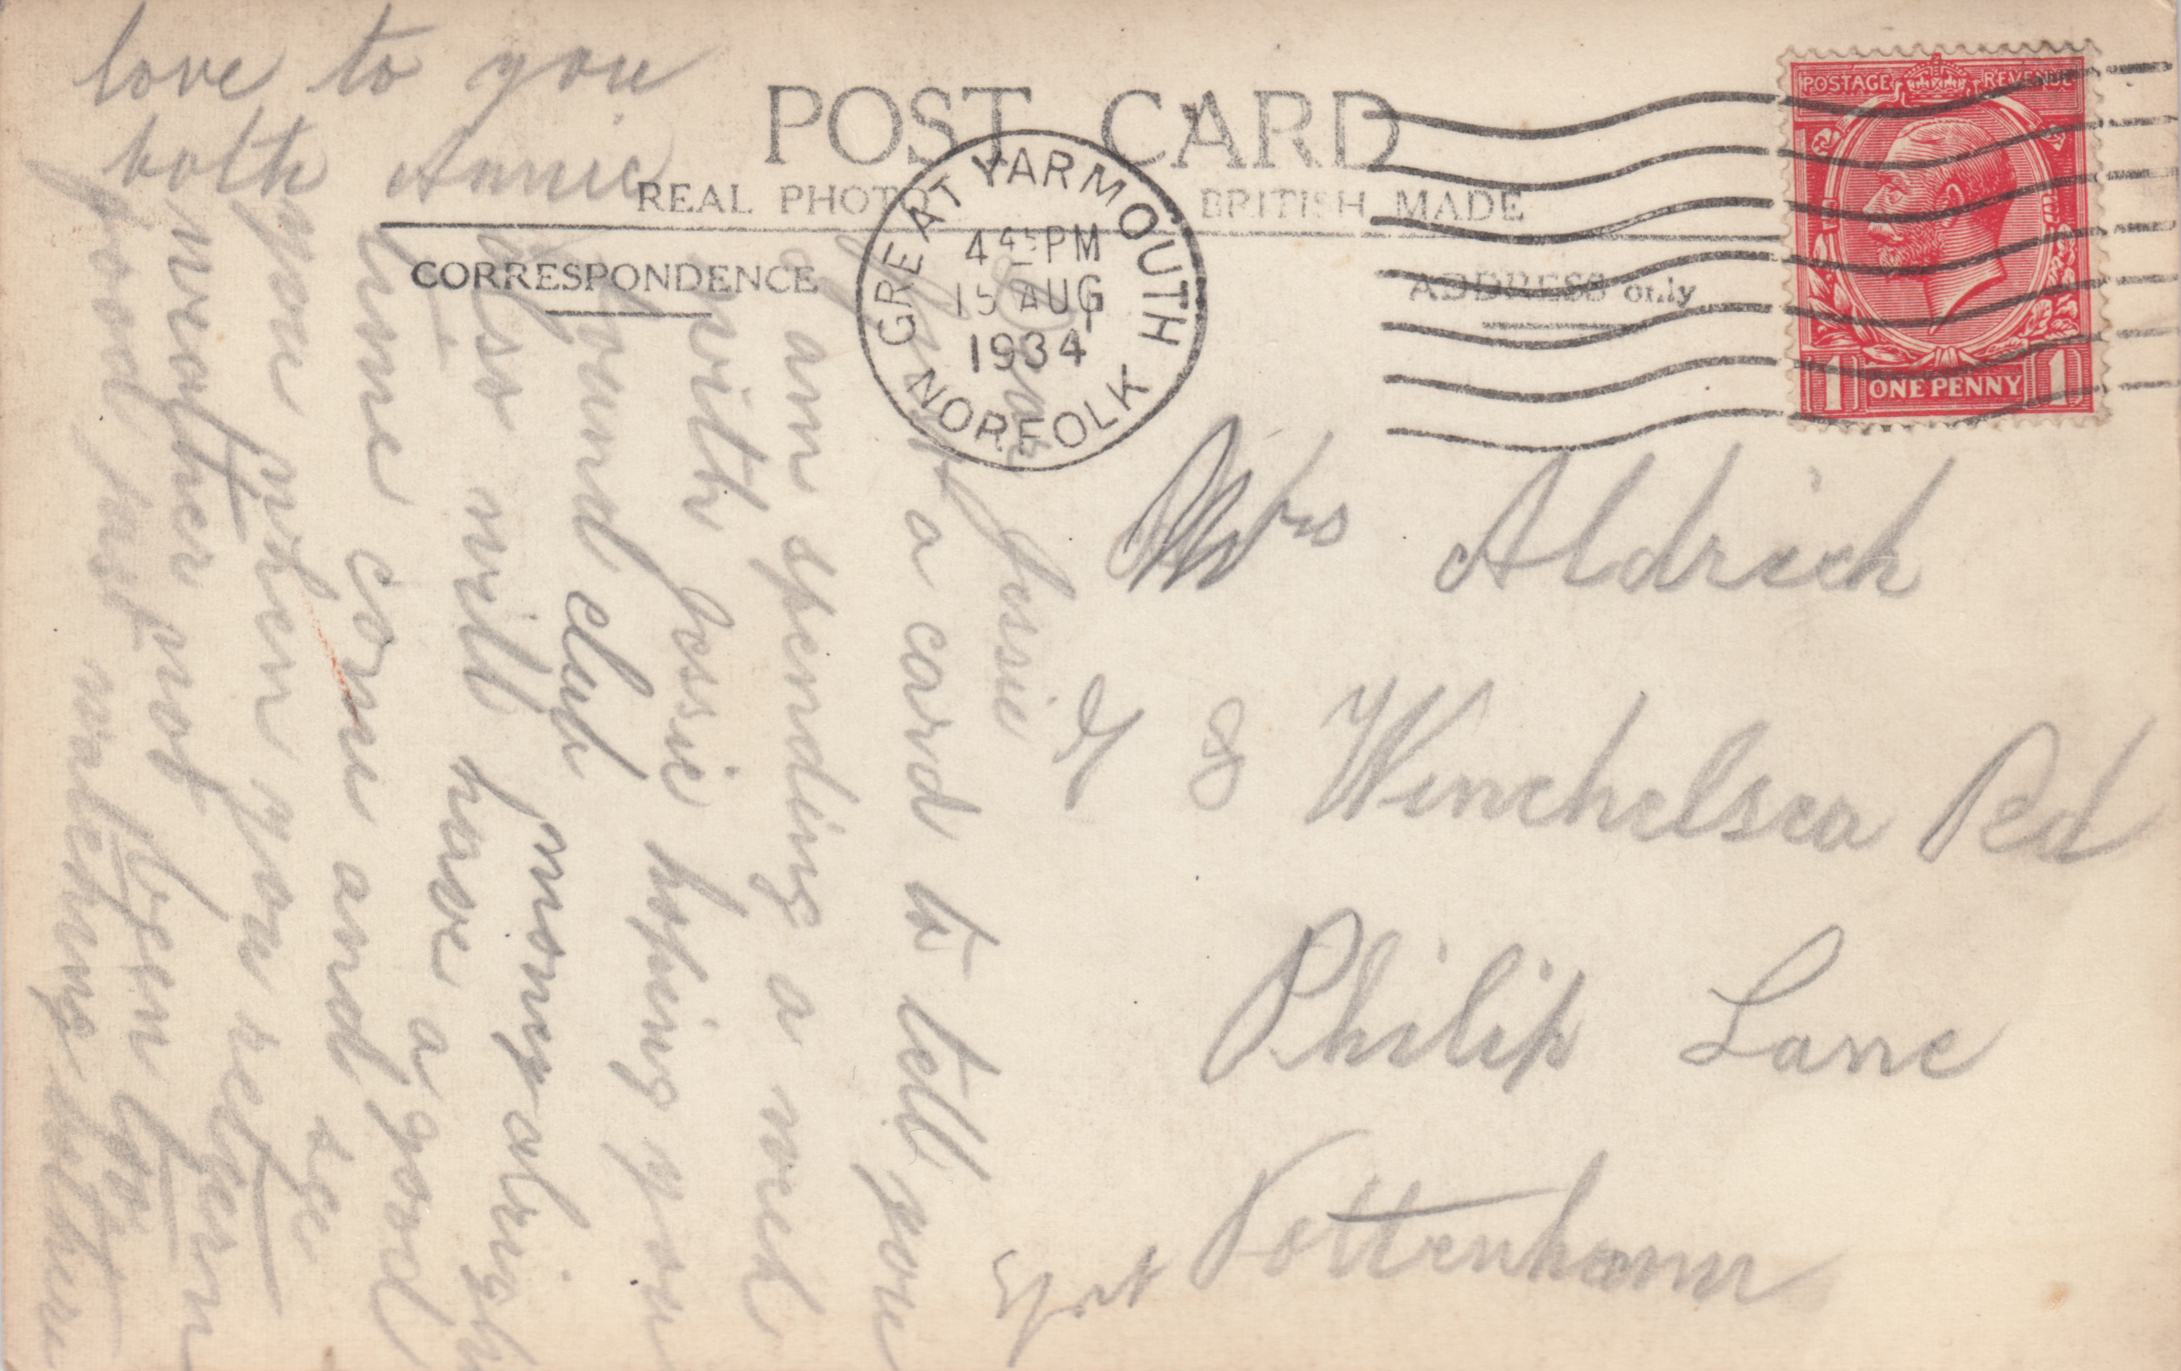 POST CARD
REAL PHOTO
BRITISH MADE
CORRESPONDENCE
ADDRESS only
GREAT YARMOUTH
4 45 PM
15 AUG
1934
NORFOLK
POSTAGE REVENUE
1 ONE PENNY 1
Mrs Aldrich
8 Winchelsea Rd
Philip Lane
Tottenham
Dear Jessie
Just a card to tell you
I am spending a week
with Jessie hoping you
found club money alright
also will have a good
time come and see
you when you return
weather not been to
good last
love to you
both Annie